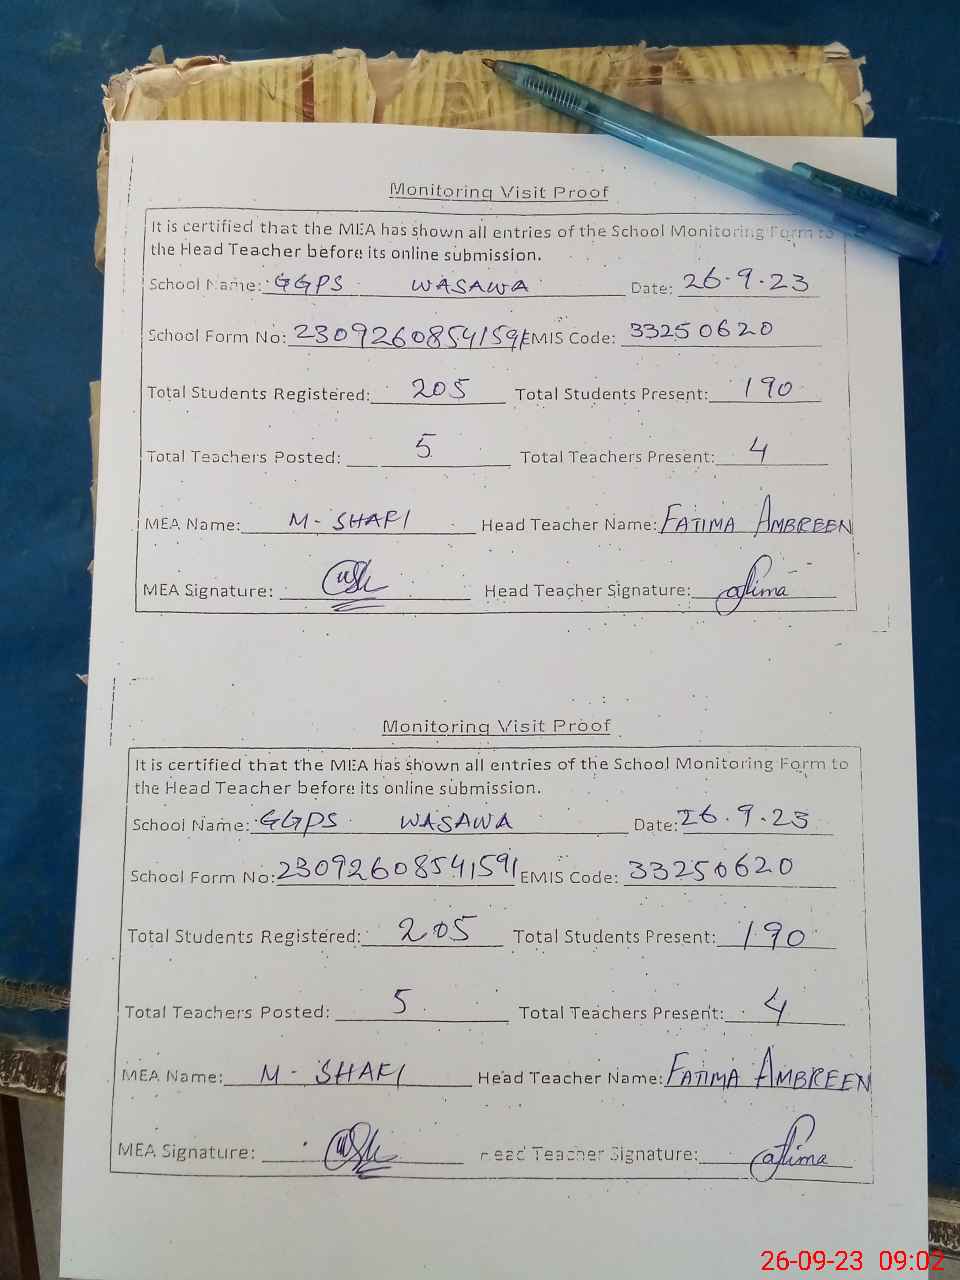 Monitoring Visit Proof
It is certified that the MEA has shown all entries of the School Monitoring Form to
the Head Teacher before its online submission.
School Name: GGPS WASAWA Date: 26.9.23
School Form No: 23092608541591 EMIS Code: 33250620
Total Students Registered: 205 Total Students Present: 190
Total Teachers Posted: 5 Total Teachers Present: 4
MEA Name: M-SHAFI Head Teacher Name: FATIMA AMBREEN
MEA Signature: Head Teacher Signature: Fatima
Monitoring Visit Proof
It is certified that the MEA has shown all entries of the School Monitoring Form to
the Head Teacher before its online submission.
School Name: GGPS WASAWA Date: 26.9.23
School Form No: 23092608541591 EMIS Code: 33250620
Total Students Registered: 205 Total Students Present: 190
Total Teachers Posted: 5 Total Teachers Present: 4
MEA Name: M-SHAFI Head Teacher Name: FATIMA AMBREEN
MEA Signature: Head Teacher Signature: Fatima
26-09-23 09:02